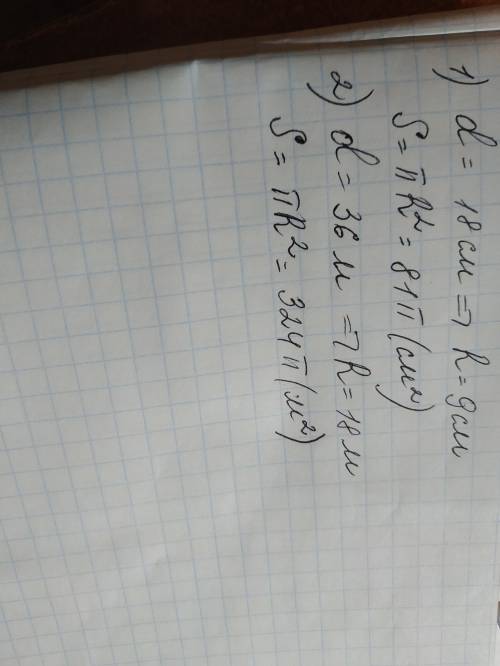 1) d = 18 см => R = 9 см
S = πR² = 81π (см²)
2) d = 36 м => R = 18 м
S = πR² = 324π (м²)